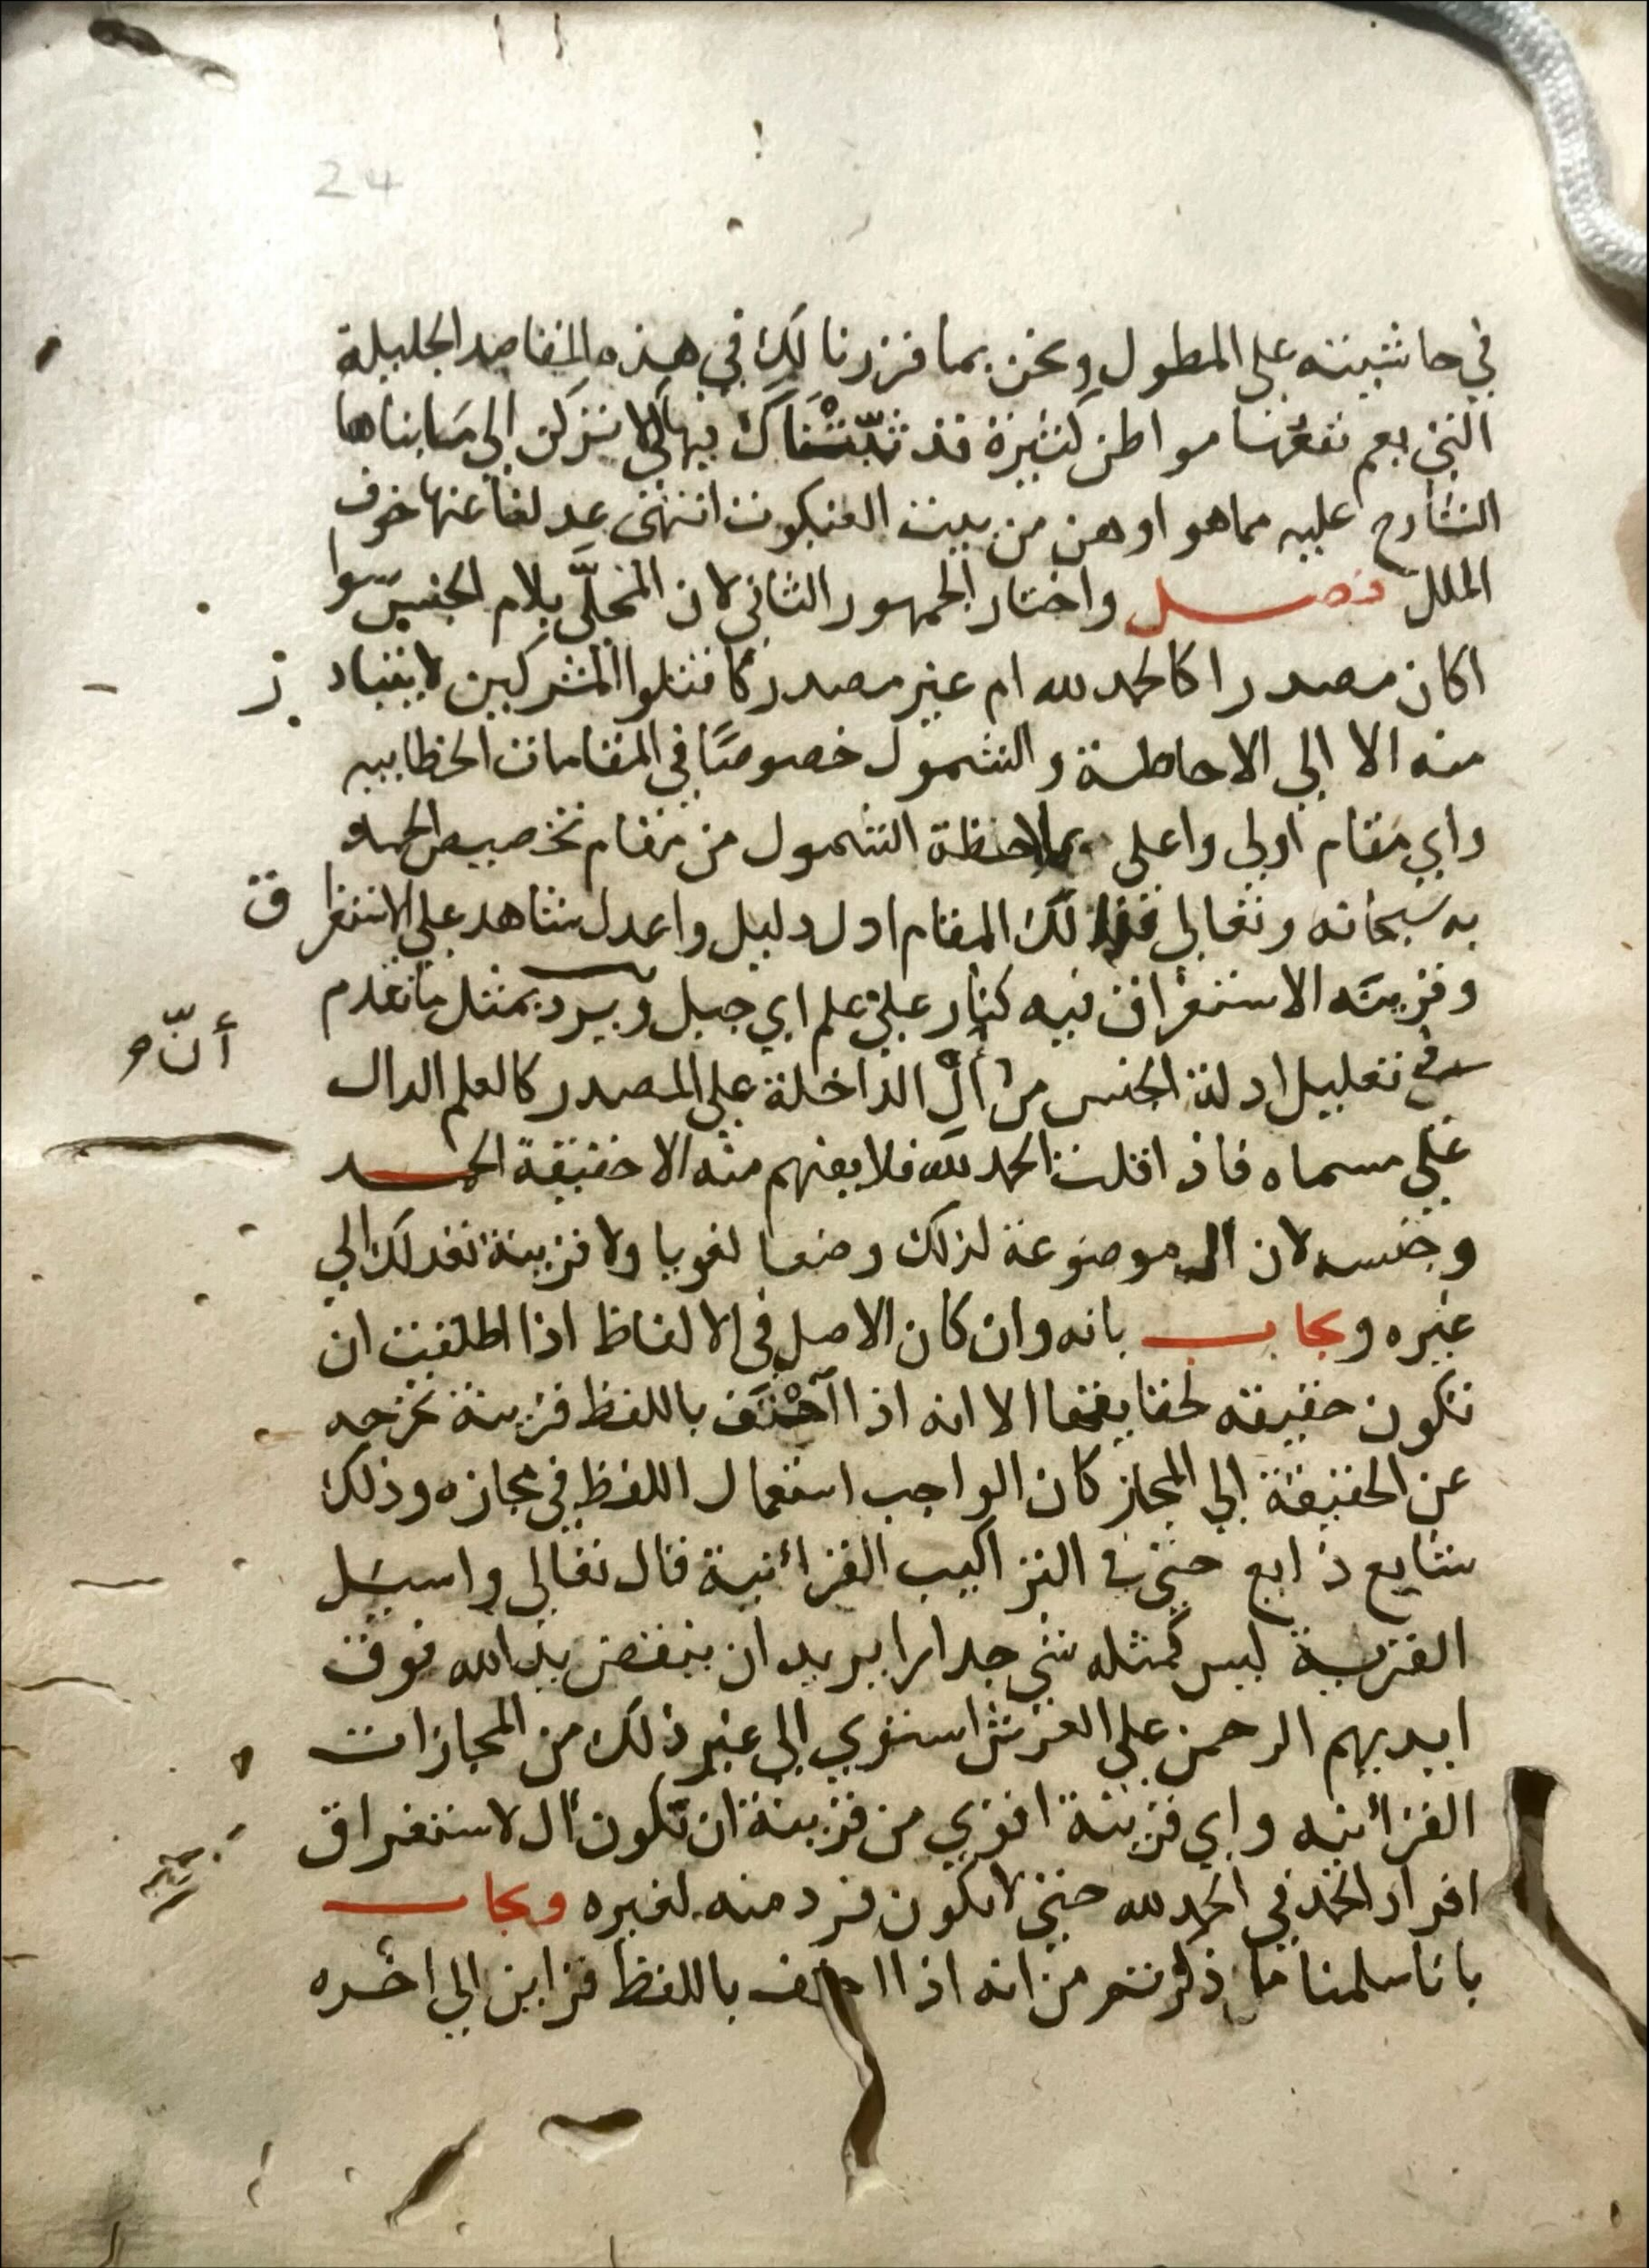 24
في حاشيته على المطول ونحن بما قررنا لك في هذه المقاصد الجليلة
التي يعم نفعها مواطن كثيرة قد ثبتناك فيها كي لا تركن إلى ما بناها
الشارح عليه مما هو اوهن من بيت العنكبوت انتهى
الملل فصل واختار الجمهور الثاني لان المحلّى بلام الجنس سوا
اكان مصدرا كالحمد لله ام غير مصدر كاقتلوا المشركين لا يتبادر
منه الا الي الاحاطة والشمول خصوصًا في المقامات الخطابيه
واي مقام اولي واعلى بملاحظة الشمول من مقام تخصيص الحمد
به سبحانه وتعالى فذلك المقام ادل دليل واعدل شاهد علي الاستغراق
وقرينته الاستغراق فيه كنار علي علم اي جبل ويرد بمثل ما تقدم
في تعليل ادلة الجنس من أنّ أل الداخلة علي المصدر كالعلم الدال
علي مسماه فاذا قلت الحمد لله فلا يفهم منه الا حقيقة الحمد
وجنسه لان ال موضوعة لذلك وضعا لغويا ولا قرينة تعدلك الي
غيره ويجاب بانه وان كان الاصل في الالفاظ اذا اطلقت ان
تكون حقيقته لحقايقها الا انه اذا احْتَف باللفظ قرينة تخرجه
عن الحقيقة الي المجاز كان الواجب استعمال اللفظ في مجازه وذلك
شايع ذايع حتي في التراكيب القرآنية قال تعالي واسيل
القرية ليس كمثله شي جدارا يريد ان ينقض يد الله فوق
ايديهم الرحمن علي العرش استوي الي غير ذلك من المجازات
القرانيه واي قرينة اقوي من قرينة ان تكون ال لاستغراق
افراد الحمد في الحمد لله حتي لا يكون فرد منه لغيره ويجاب
بانا سلمنا ما ذكرتم من انه اذا احتف باللفظ قراين الي اخره